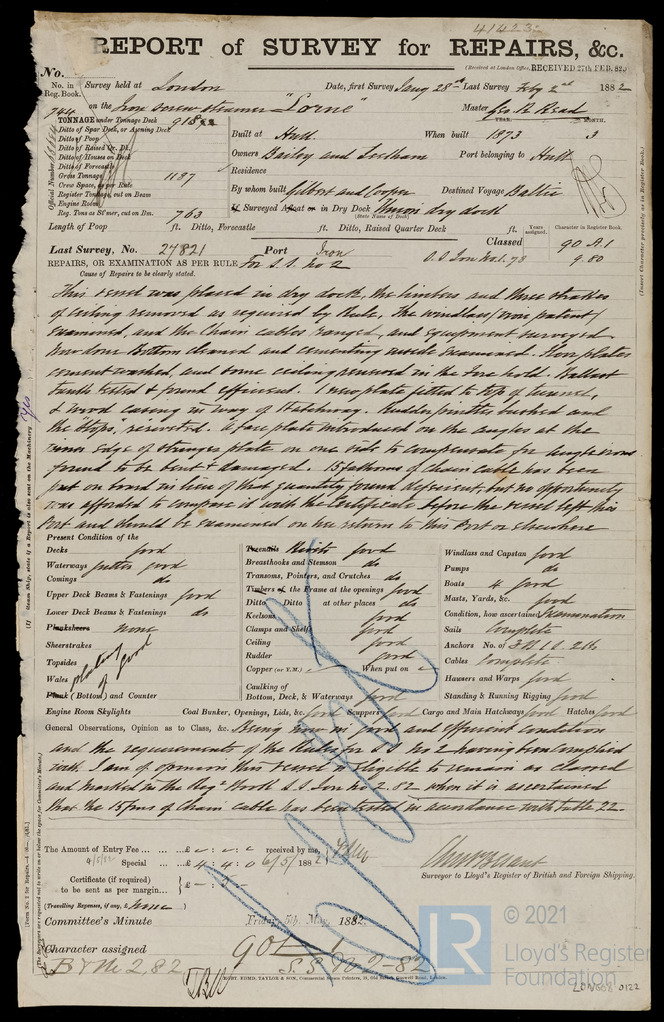 REPORT of SURVEY for REPAIRS, &c.
(Received at London Office, RECEIVED 27th FEB. 82.)
No.
No. in Reg. Book. Survey held at London Date, first Survey Jany 28th Last Survey Feby 2nd 1882
744 on the Iron Screw Steamer "Lorne" Master Geo. R. Read
TONNAGE under Tonnage Deck
Ditto of Spar Deck, or Awning Deck
Ditto of Poop
Ditto of Raised Qr. Dk.
Ditto of Houses on Deck
Ditto of Forecastle
Gross Tonnage 1187
Crew Space, as per Rule
Register Tonnage, cut on Beam
Engine Room
Reg. Tons as St'mer, cut on Bm. 763
Official Number
YEAR. MONTH.
Built at Hull When built 1873 3
Owners Bailey and Leetham Port belonging to Hull
Residence
By whom built Gilbert and Cooper Destined Voyage Baltic
If Surveyed Afloat or in Dry Dock Union dry dock
(State Name of Dock)
Length of Poop ft. Ditto, Forecastle ft. Ditto, Raised Quarter Deck ft.
Years assigned. Character in Register Book.
Last Survey, No. 27821 Port Iron Classed 90 A.1
REPAIRS, OR EXAMINATION AS PER RULE For S.S. no 2 S.S. Lon No 1. 78 9.80
Cause of Repairs to be clearly stated.
This vessel was placed in dry dock, the limbers and three strakes
of ceiling removed as required by Rule. The windlass (iron patent)
examined, and the Chain cables ranged, and Equipment surveyed
Bottom cleaned and cementing inside examined.
cement washed, and some ceiling renewed in the fore hold. Ballast
tanks tested & found efficient. 1 new plate fitted to top of tunnel,
& wood casing in way of Hatchway. Rudder pintles bushed and
the stops, rerivetted. A face plate introduced on the angles at the
inner edge of stringer plate on one side to compensate for angle irons
found to be bent & damaged. 15 fathoms of Chain Cable has been
put on board in lieu of that quantity found deficient, but no opportunity
was afforded to compare it with the Certificate before the vessel left this
Port and should be examined on her return to this Port or elsewhere
Present Condition of the
Decks good
Waterways gutters good
Comings do
Upper Deck Beams & Fastenings good
Lower Deck Beams & Fastenings do
Planksheers none
Sheerstrakes
Topsides
Wales
Plank (Bottom) and Counter
plating of good
Engine Room Skylights
Treenails Rivets good
Breasthooks and Stemson do
Transoms, Pointers, and Crutches do
Timbers of the Frame at the openings good
Ditto Ditto at other places do
Keelsons good
Clamps and Shelfs good
Ceiling good
Rudder good
Copper (or Y.M.) When put on
Caulking of Bottom, Deck, & Waterways good
Coal Bunker, Openings, Lids, &c. good Scuppers good Cargo and Main Hatchways good Hatches good
Windlass and Capstan good
Pumps do
Boats 4 good
Masts, Yards, &c. good
Condition, how ascertained Examination
Sails Complete
Anchors No. of 3 B 1 S 2 K
Cables Complete
Hawsers and Warps good
Standing & Running Rigging good
General Observations, Opinion as to Class, &c. Being now in good and efficient condition
and the requirements of the Rules for S.S. No 2 having been complied
with, I am of opinion this Vessel is eligible to remain as classed
and marked in the Regr Book S.S. Lon No 2. 82 when it is ascertained
that the 15 fms of Chain cable has been tested in accordance with table 22.
The Amount of Entry Fee ... £ received by me,
Special ... £ 4 : 4 : 0 6/5/ 1882
Certificate (if required) to be sent as per margin... £
(Travelling Expenses, if any, £ none)
Surveyor to Lloyd's Register of British and Foreign Shipping.
Committee's Minute Friday, 5th May, 1882.
Character assigned 90 A 1
B & M 2,82 S.S. No 2-82
© 2021
LR Lloyd's Register Foundation
LON608 0122